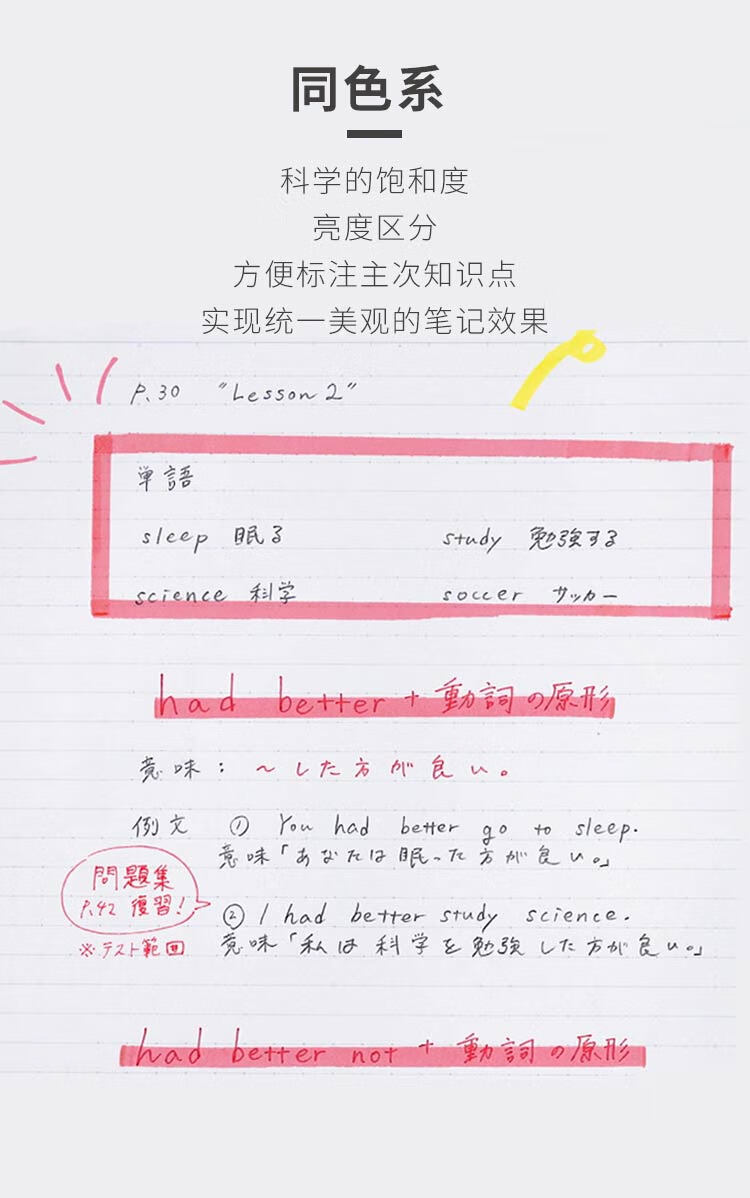 同色系
科学的饱和度
亮度区分
方便标注主次知识点
实现统一美观的笔记效果
P.30 "Lesson 2"
単語
sleep 眠る
study 勉強する
science 科学
soccer サッカー
had better + 動詞の原形
意味：～した方が良い。
例文 ① You had better go to sleep.
意味「あなたは眠った方が良い。」
問題集
P.42 復習！
※テスト範囲
② I had better study science.
意味「私は科学を勉強した方が良い。」
had better not + 動詞の原形